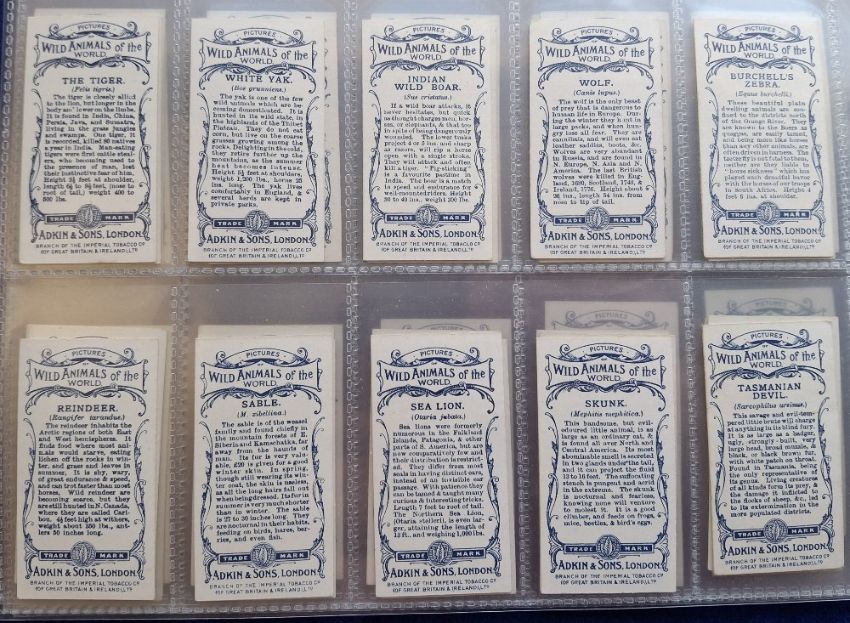 PICTURES
WILD ANIMALS of the
WORLD.
THE TIGER.
(Felis tigris.)
The tiger is closely allied
to the lion, but longer in the
body and lower on the limbs.
It is found in India, China,
Persia, Java, and Sumatra,
living in the grass jungles
and swamps. One tiger, it
is recorded, killed 80 natives
a year in India. Man-eating
tigers were first cattle steal-
ers, who becoming used to
the presence of man, lose
their instinctive fear of him.
Height 3½ feet at shoulder,
root of tail,) weight 450 to
500 lbs.
TRADE MARK
ADKIN & SONS, LONDON.
BRANCH OF THE IMPERIAL TOBACCO Co
(OF GREAT BRITAIN & IRELAND), LTD
PICTURES
WILD ANIMALS of the
WORLD.
WHITE YAK.
(Bos grunniens.)
The yak is one of the few
wild animals which are be-
coming domesticated. It is
hunted in the wild state, in
the highlands of the Thibet
Plateau. They do not eat
corn, but live on the coarse
grasses growing among the
rocks. Delighting in the cold,
they retire further up the
mountains, as the summer
heat becomes intense.
Height 5½ feet at shoulder,
weight 1,200 lbs., horns 30
ins. long. The yak lives
comfortably in England, &
several herds are kept in
private parks.
TRADE MARK
ADKIN & SONS, LONDON.
BRANCH OF THE IMPERIAL TOBACCO Co
(OF GREAT BRITAIN & IRELAND), LTD
PICTURES
WILD ANIMALS of the
WORLD.
INDIAN
WILD BOAR.
(Sus cristatus.)
If a wild boar attacks, it
never hesitates, but quick
as thought charges men, hors-
es, or elephants, & that too
in spite of being dangerously
wounded. The lower tusks
project 4 or 5 ins., and being
sharp, will rip a horse
open with a single stroke.
They will attack and often
kill a tiger. "Pig-sticking"
is a favourite pastime in
India. The boar is a match
in speed and endurance for
the best steeds & riders. Height
30 to 40 ins., weight 300 lbs.
TRADE MARK
ADKIN & SONS, LONDON.
BRANCH OF THE IMPERIAL TOBACCO Co
(OF GREAT BRITAIN & IRELAND), LTD
PICTURES
WILD ANIMALS of the
WORLD.
WOLF.
(Canis lupus.)
The wolf is the only beast
of prey that is dangerous to
human life in Europe. Dur-
ing the winter they hunt in
large packs, and when hun-
gry lose all fear. They are
cannibals, and will even eat
leather saddles, boots, &c.
Wolves are very abundant
in Russia, and are found in
N. Europe, N. Asia and N.
America. The last British
wolves were killed in Eng-
land, 1680, Scotland, 1743, &
Ireland, 1776. Height about
26 ins., length 54 ins. from
nose to tip of tail.
TRADE MARK
ADKIN & SONS, LONDON.
BRANCH OF THE IMPERIAL TOBACCO Co
(OF GREAT BRITAIN & IRELAND), LTD
PICTURES
WILD ANIMALS of the
WORLD.
BURCHELL'S
ZEBRA.
(Equus burchelli.)
These beautiful plain
dwelling animals are con-
fined to the districts north
of the Orange River. They
are known to the Boers as
quaggas, are easily tamed,
and being more like horses
than any other animals, are
often driven in harness. The
tsetse fly is not fatal to them,
neither are they liable to
"horse sickness" which has
played such dreadful havoc
with the horses of our troops
in South Africa. Height 4
feet 5 ins. at shoulder.
TRADE MARK
ADKIN & SONS, LONDON
BRANCH OF THE IMPERIAL TOBACCO Co
(OF GREAT BRITAIN & IRELAND), LTD
PICTURES
WILD ANIMALS of the
WORLD.
REINDEER.
(Rangifer tarandus.)
The reindeer inhabits the
Arctic regions of both East
and West hemispheres. It
finds food where most ani-
mals would starve, eating
lichen off the rocks in win-
ter, and grass and leaves in
summer. It is shy, wary,
of great endurance & speed
and can trot faster than most
horses. Wild reindeer are
becoming scarce, but they
are still hunted in N. Canada,
where they are called Cari-
bou. 4½ feet high at withers,
weight about 350 lbs., ant-
lers 50 inches long.
TRADE MARK
ADKIN & SONS, LONDON.
BRANCH OF THE IMPERIAL TOBACCO Co
(OF GREAT BRITAIN & IRELAND), LTD
PICTURES
WILD ANIMALS of the
WORLD.
SABLE.
(M. zibellina.)
The sable is of the weasel
family and found chiefly in
the mountain forests of E.
Siberia and Kamschatka, far
away from the haunts of
man. Its fur is very valu-
able, £20 is given for a good
winter skin. In spring,
though still wearing the win-
ter coat, the skin is useless,
as all the long hairs fall out
when being dressed. Its fur in
summer is very much shorter
than in winter. The sable
is 27 to 30 inches long. They
are nocturnal in their habits,
feeding on birds, hares, ber-
ries, and even fish.
TRADE MARK
ADKIN & SONS, LONDON.
BRANCH OF THE IMPERIAL TOBACCO Co
(OF GREAT BRITAIN & IRELAND), LTD
PICTURES
WILD ANIMALS of the
WORLD.
SEA LION.
(Otaria jubata.)
Sea lions were formerly
numerous in the Falkland
Islands, Patagonia, & other
parts of S. America, but are
now comparatively few and
their distribution is restrict-
ed. They differ from most
seals in having distinct ears,
instead of an invisible ear
passage. With patience they
can be tamed & taught many
curious & interesting tricks.
Length 7 feet to root of tail.
The Northern Sea Lion,
(Otaria stelleri), is even lar-
ger, attaining the length of
13 ft., and weighing 1,000 lbs.
TRADE MARK
ADKIN & SONS, LONDON.
BRANCH OF THE IMPERIAL TOBACCO Co
(OF GREAT BRITAIN & IRELAND), LTD
PICTURES
WILD ANIMALS of the
WORLD.
SKUNK.
(Mephitis mephitica.)
This handsome, but evil-
odoured little animal, is as
large as an ordinary cat, &
is found all over North and
Central America. Its most
abominable smell is secreted
in two glands under the tail,
and it can project the fluid
12 to 16 feet. The suffocating
stench is pungent and acrid
in the extreme. The skunk
is nocturnal and fearless,
knowing none will venture
to molest it. It is a good
climber, and feeds on frogs,
mice, beetles, & bird's eggs.
TRADE MARK
ADKIN & SONS, LONDON.
BRANCH OF THE IMPERIAL TOBACCO Co
(OF GREAT BRITAIN & IRELAND), LTD
PICTURES
WILD ANIMALS of the
WORLD.
TASMANIAN
DEVIL.
(Sarcophilus ursinus.)
This savage and evil-tem-
pered little brute will charge
at anything in its blind fury.
It is as large as a badger,
ugly, strongly-built, very
large head, broad muzzle, &
black, or black brown fur,
with white patch on throat.
Found in Tasmania, being
the only representative of
its genus. Living creatures
of all kinds form its prey, &
the damage it inflicted to
the flocks of sheep, &c., led
to its extermination in the
more populated districts.
TRADE MARK
ADKIN & SONS, LONDON.
BRANCH OF THE IMPERIAL TOBACCO Co
(OF GREAT BRITAIN & IRELAND), LTD